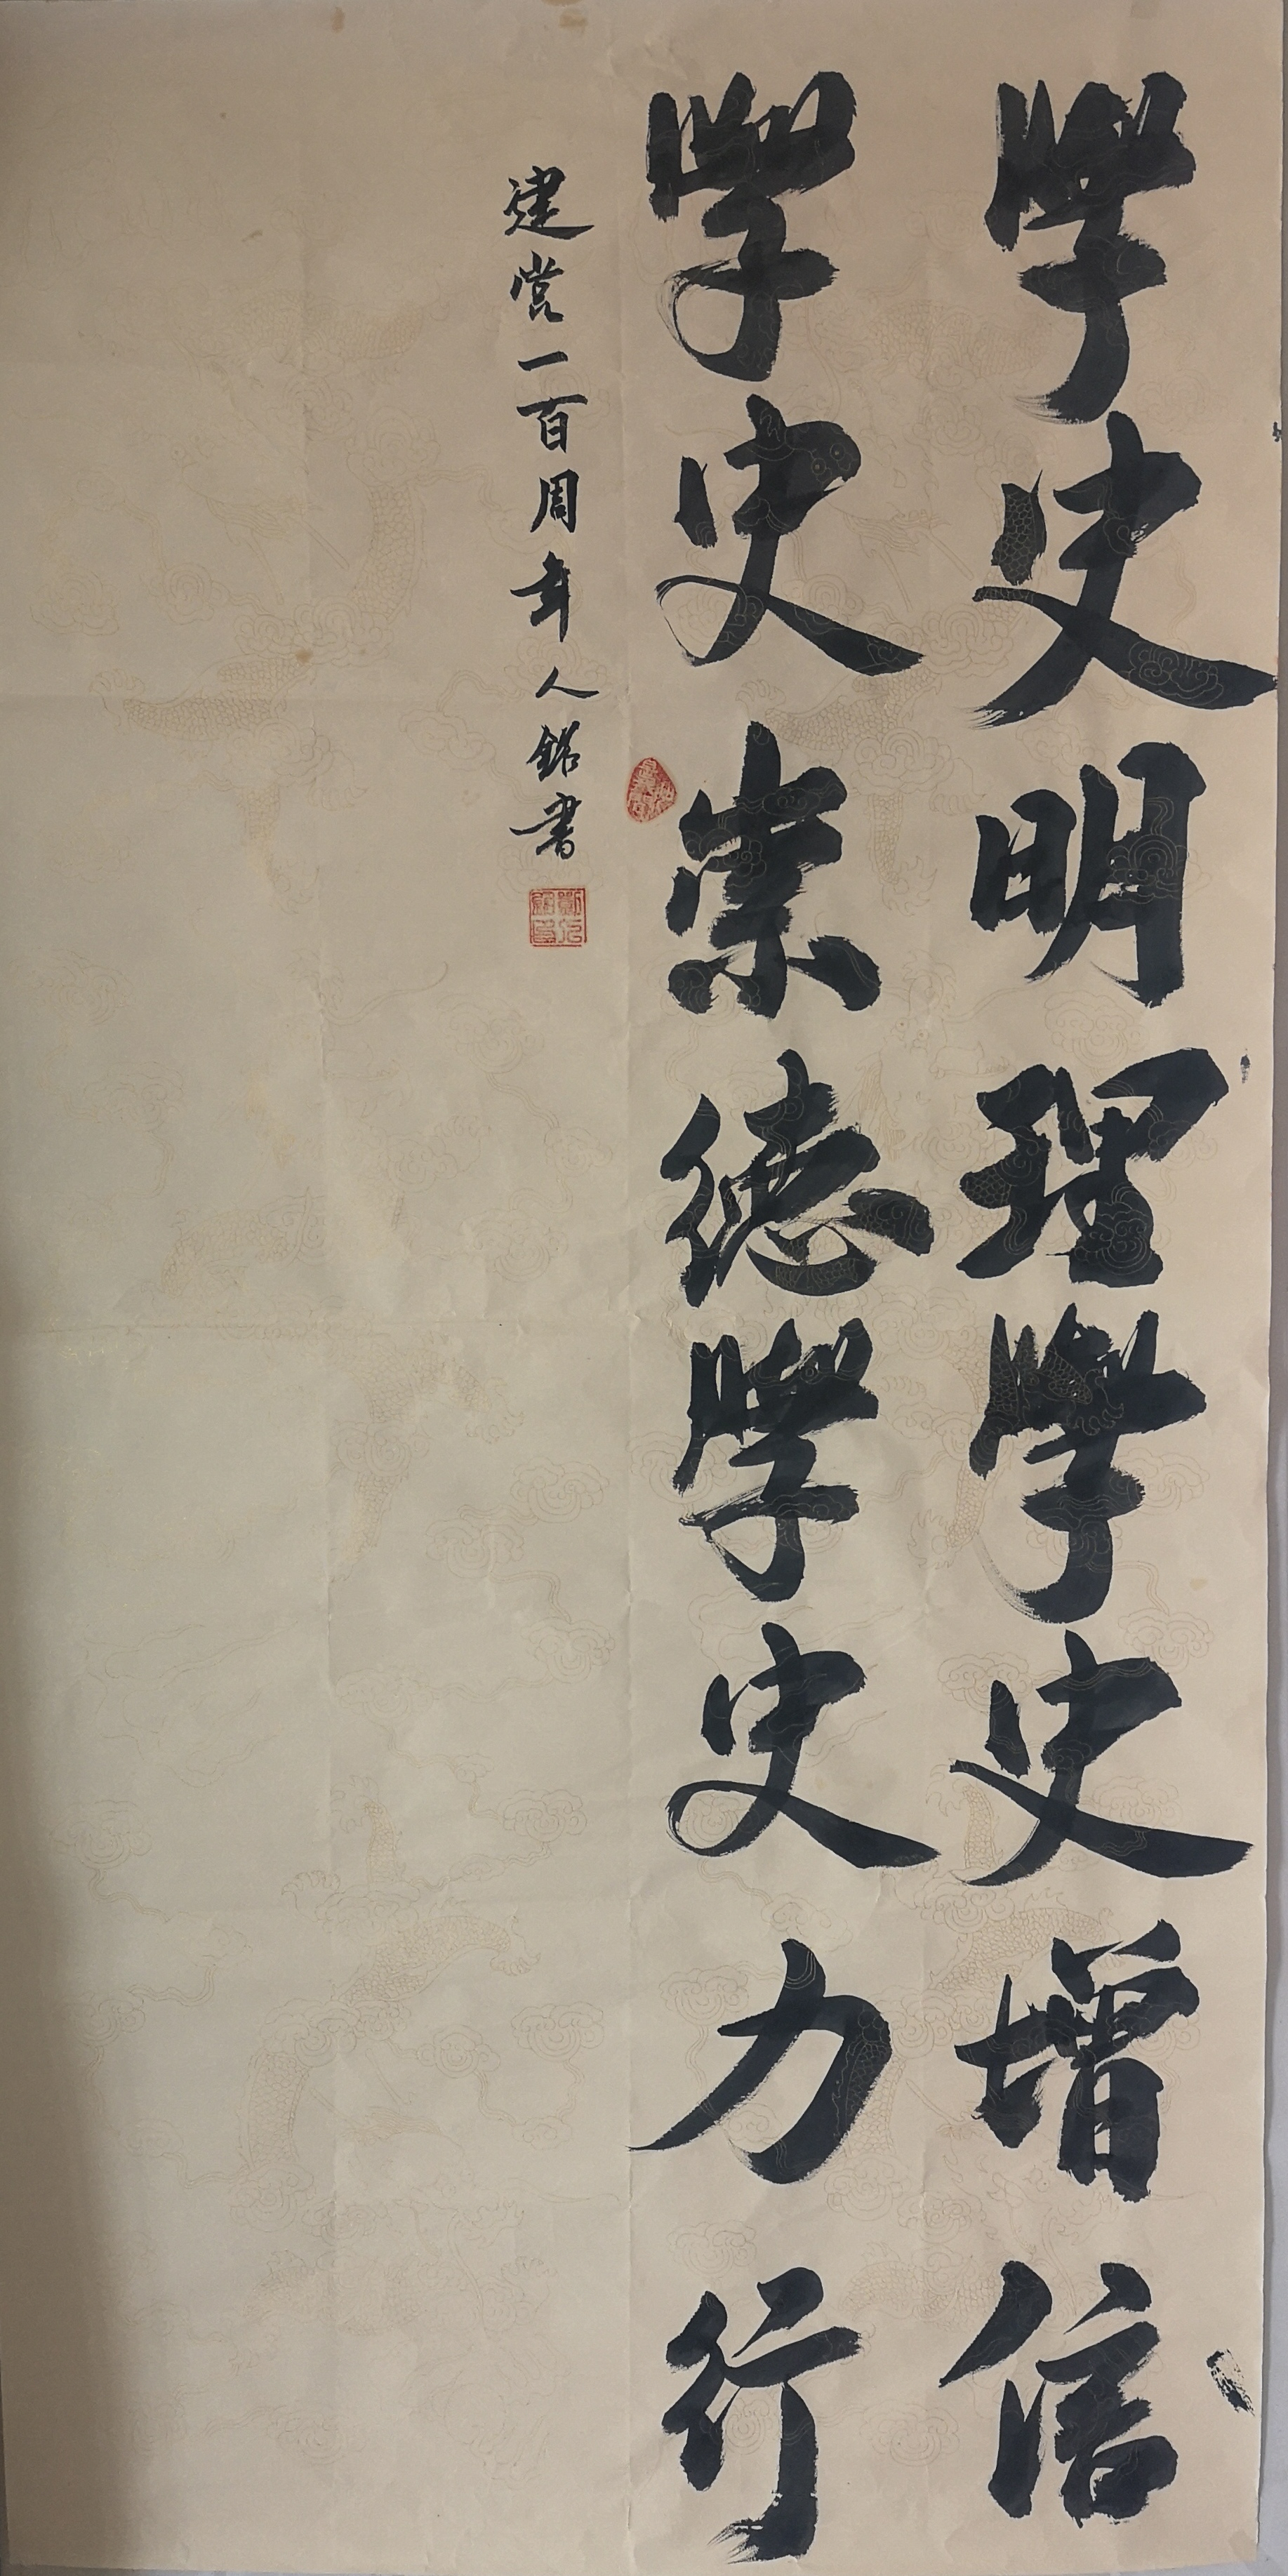 學史明理學史增信
學史崇德學史力行
建党一百周年人銘書